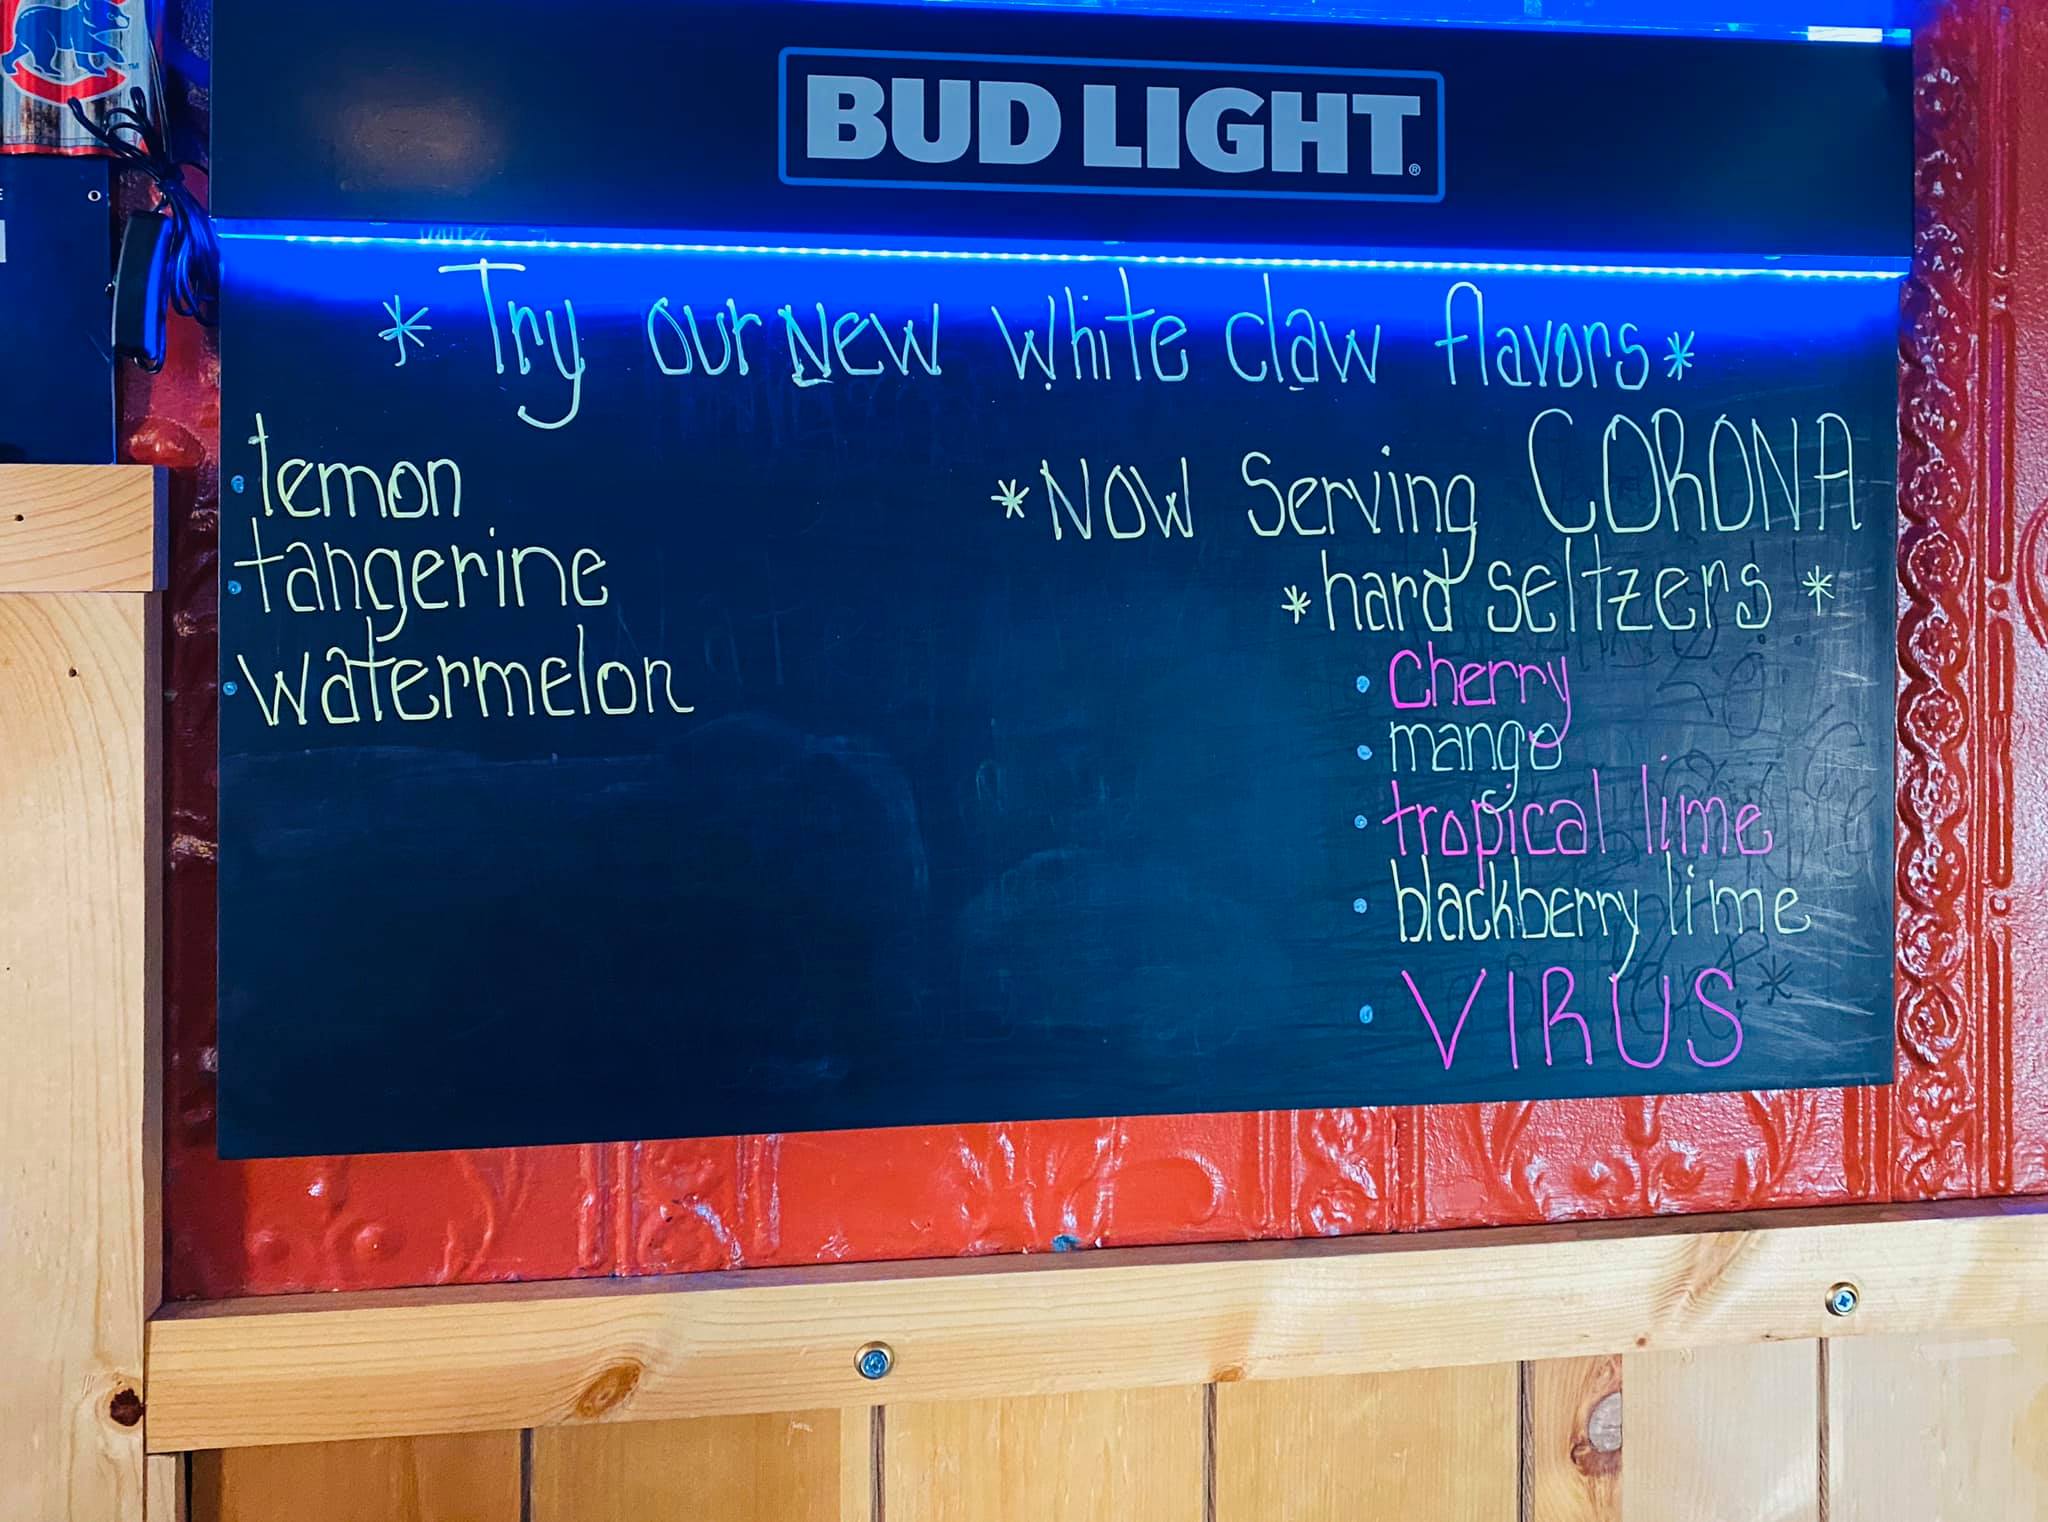 BUD LIGHT®
* Try our New White claw flavors *
• lemon
• tangerine
• watermelon
* NOW Serving CORONA
* hard seltzers *
• cherry
• mango
• tropical lime
• blackberry lime
• VIRUS